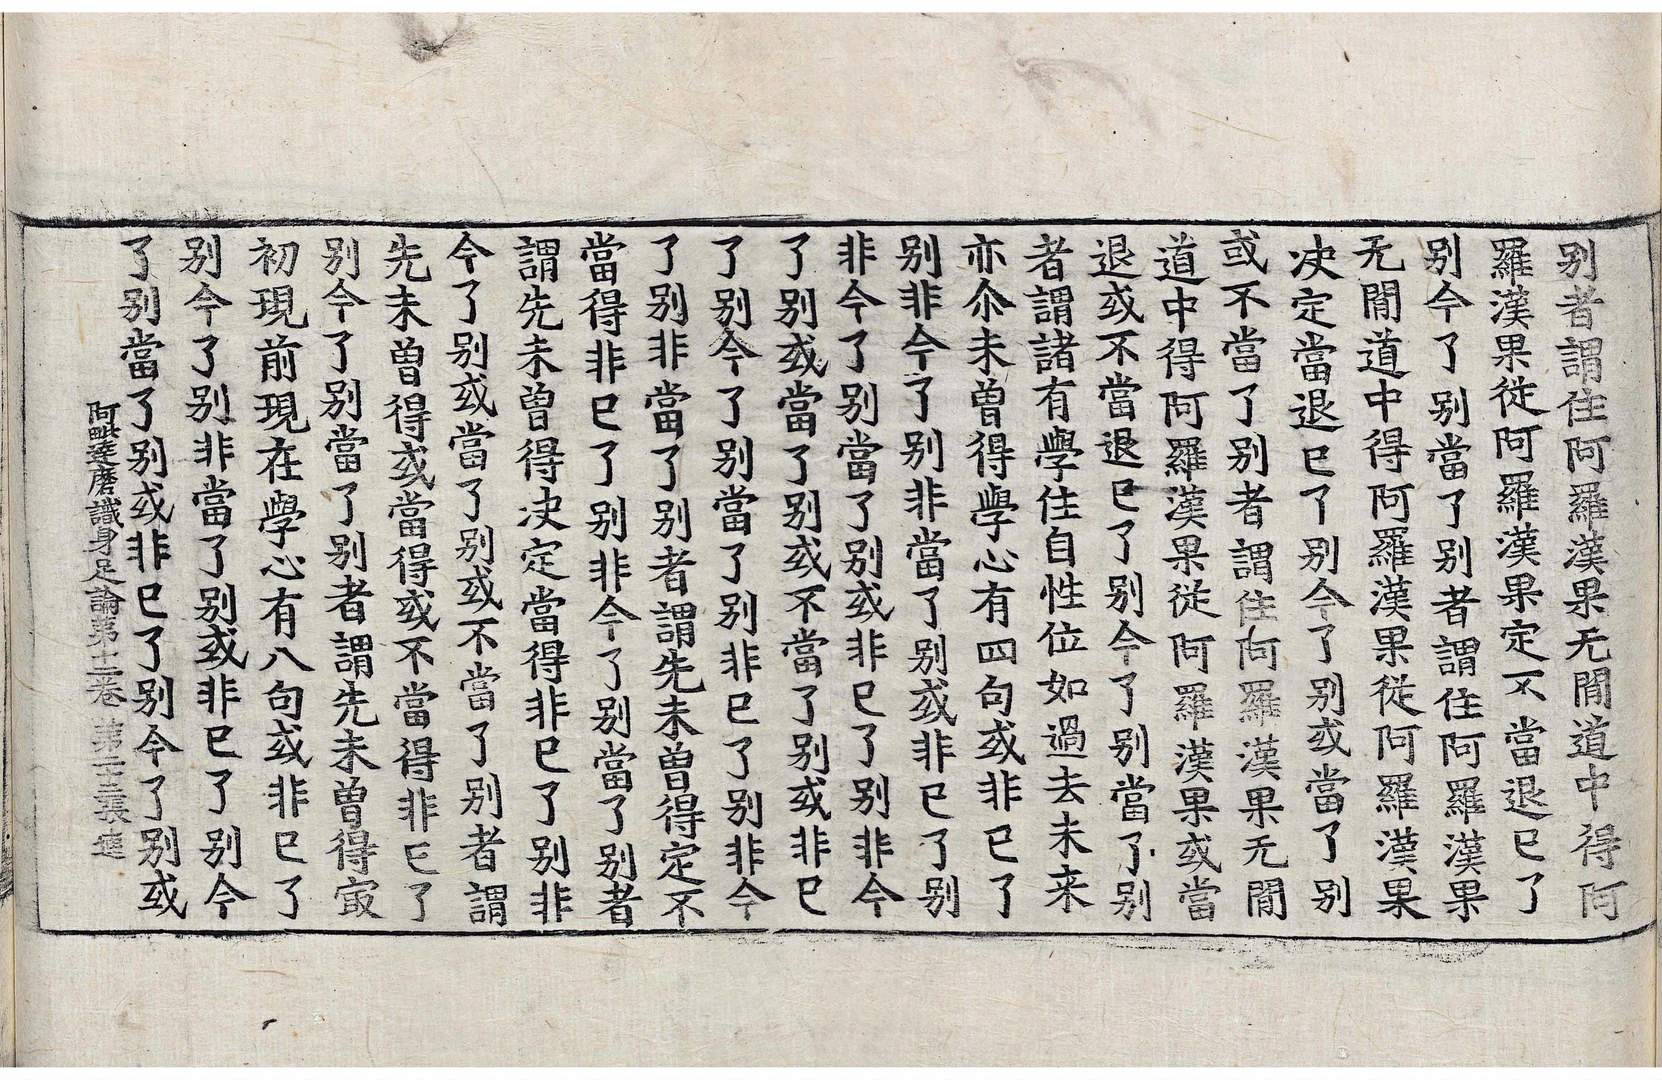 别者謂住阿羅漢果无閒道中得阿
羅漢果從阿羅漢果定不當退已了
别今了别當了别者謂住阿羅漢果
无閒道中得阿羅漢果從阿羅漢果
决定當退已了别今了别或當了别
或不當了别者謂住阿羅漢果无閒
道中得阿羅漢果從阿羅漢果或當
退或不當退已了别今了别當了别
者謂諸有學住自性位如過去未来
亦尒未曾得學心有四句或非已了
别非今了别非當了别或非已了别
非今了别當了别或非已了别非今
了别或當了别或不當了别或非已
了别今了别當了别非已了别非今
了别非當了别者謂先未曾得定不
當得非已了别非今了别當了别者
謂先未曾得决定當得非已了别非
今了别或當了别或不當了别者謂
先未曾得或當得或不當得非已了
别今了别當了别者謂先未曾得㝡
初現前現在學心有八句或非已了
别今了别非當了别或非已了别今
了别當了别或非已了别今了别或
阿毗達磨識身足論第十二卷 第二十三張 連